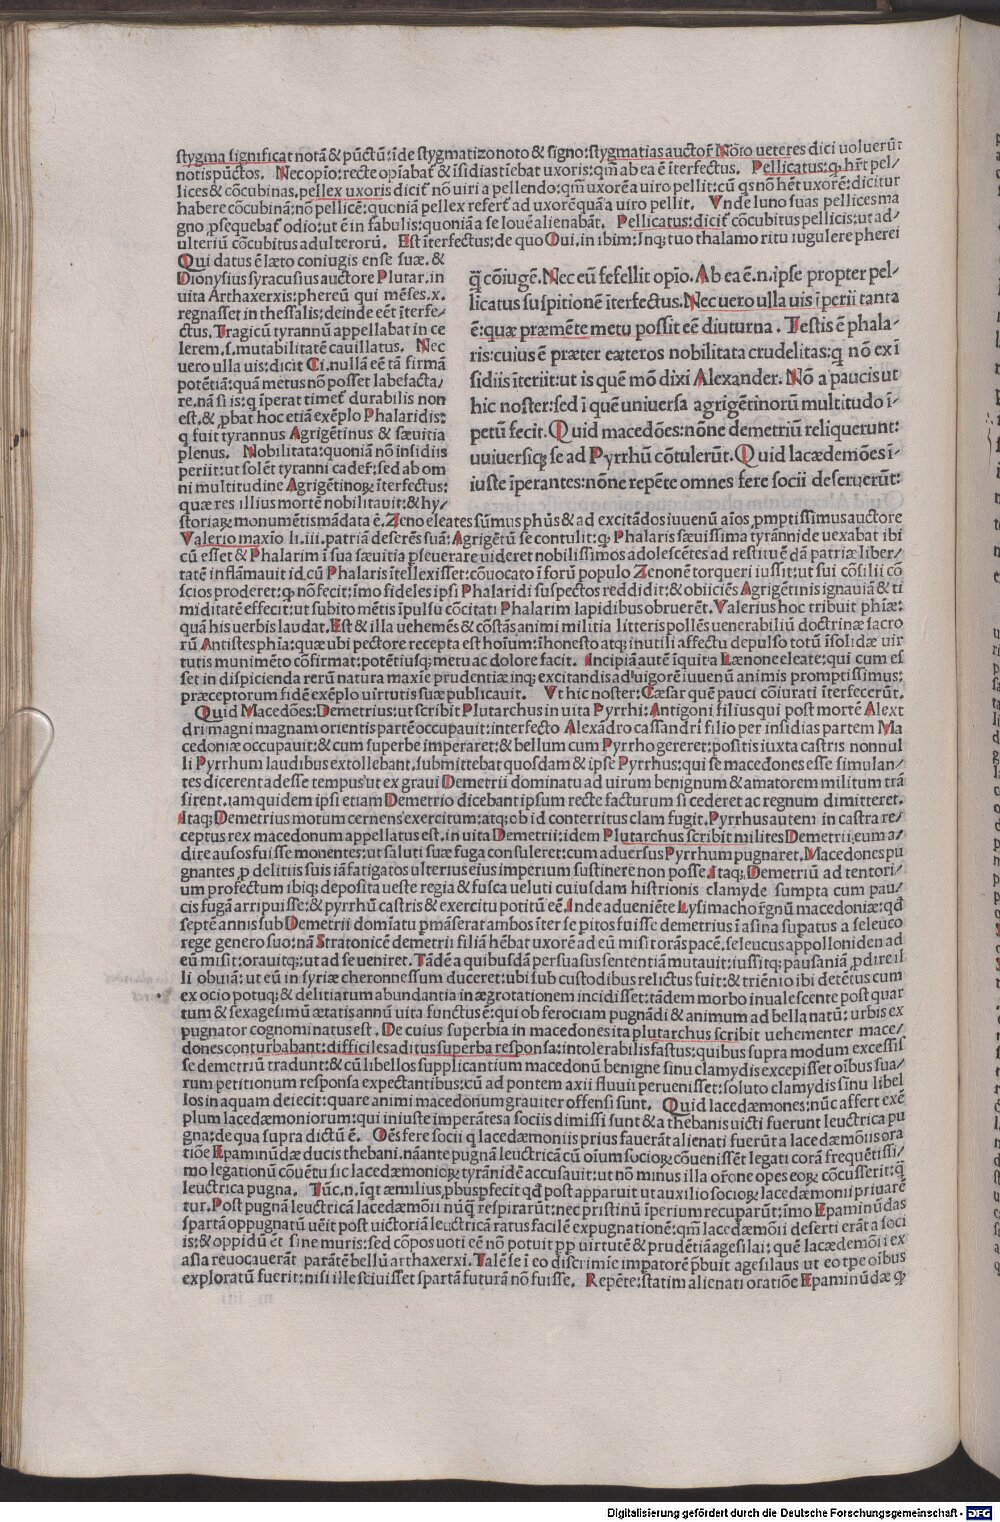 stygma significat notā & pūctū:īde stygmatizo noto & signo:stygmatias auctor̄ Nōro ueteres dici uoluerūt
notis pūctos. Nec opio:recte opiabat̄ & īsidias tiebat uxoris:qm̄ ab ea ē īterfectus. Pellicatus:qꝫ hn̄t pel/
lices & cōcubinas,pellex uxoris dicit̄ nō uiri a pellendo:qm̄ uxorē a uiro pellit:cū qs nō hēt uxorē:dicitur
habere cōcubinā:nō pellicē:quoniā pellex refert̄ ad uxorē quā a uiro pellit. Vnde Iuno suas pellices ma
gno ꝓsequebat̄ odio:ut ē in fabulis:quoniā a se Iouē alienabāt. Pellicatus:dicit̄ cōcubitus pellicis:ut ad/
ulteriū cōcubitus adulterorū. Est īterfectus:de quo Oui.in ibim:Inqꝫ tuo thalamo ritu iugulere pherei
Qui datus ē læto coniugis ense suæ. &
Dionysius syracusius auctore Plutar.in
uita Arthaxerxis:phereū qui mēses.x.
regnasset in thessalis:deinde eēt īterfe/
ctus.Tragicū tyrannū appellabat in ce
lerem.s.mutabilitatē cauillatus. Nec
uero ulla uis:dicit Ci.nullā eē tā firmā
potētiā:quā metus nō posset labefacta/
re,nā si is:q īperat timet̄ durabilis non
est,& ꝓbat hoc etiā exēplo Phalaridis:
q fuit tyrannus Agrigētinus & sæuitia
plenus. Nobilitata:quoniā nō īnsidiis
periit:ut solēt tyranni cadeſ:sed ab om
ni multitudine Agrigētinoꝝ īterfectus:
quæ res illius mortē nobilitauit:& hy/
q̄ cōiugē.Nec eū fefellit opīo.Ab ea ē.n.ipse propter pel/
licatus suspitionē īterfectus.Nec uero ulla uis īperii tanta
ē:quæ præmēte metu possit eē diuturna. Testis ē phala/
ris:cuius ē præter cæteros nobilitata crudelitas:q nō ex ī
sidiis īteriit:ut is quē mō dixi Alexander.Nō a paucis ut
hic noster:sed ī quē uniuersa agrigētinorū multitudo ī/
petū fecit.Quid macedōes:nōne demetriū reliquerunt:
uuiuersiqꝫ se ad Pyrrhū cōtulerūt.Quid lacædemōes ī/
iuste īperantes:nōne repēte omnes fere socii deseruerūt:
storiaꝝ monumētis mādata ē.Zeno eleates sūmus phūs & ad excitādos iuuenū aīos ꝓmptissimus auctore
Valerio maxio li.iii.patriā deserēs suā:Agrigētū se contulit:qꝫ Phalaris sæuissima tyrānide uexabat ibi
cū esset & Phalarim ī sua sæuitia ꝑseuerare uideret nobilissimos adolescētes ad restituēdā patriæ liber/
tatē inflāmauit id cū Phalaris ītellexisset:cōuocato ī forū populo Zenonē torqueri iussit:ut sui cōsilii cō
scios proderet:qꝫ nō fecit:īmo fideles ipsi Phalaridi suspectos reddidit:& obiiciēs Agrigētinis ignauiā & ti
miditatē effecit:ut subito mētis īpulsu cōcitati Phalarim lapidibus obruerēt.Valerius hoc tribuit phīæ:
quā his uerbis laudat.Est & illa uehemēs & cōstās animi militia litteris pollēs uenerabiliū doctrinæ sacro
rū Antistes phīa:quæ ubi pectore recepta est hoīum:īhonesto atqꝫ inutili affectu depulso totū ī solidæ uir
tutis munimēto cōfirmat:potētiusqꝫ metu ac dolore facit. Incipiā autē īquit a Zænone eleate:qui cum es
set in dispicienda rerū natura maxīe prudentiæ inqꝫ excitandis ad uigorē iuuenū animis promptissimus:
præceptorum fidē exēplo uirtutis suæ publicauit. Vt hic noster:Cæsar quē pauci cōiurati īterfecerūt.
Quid Macedōes:Demetrius:ut scribit Plutarchus in uita Pyrrhi:Antigoni filius qui post mortē Alexā
dri magni magnam orientis partē occupauit:interfecto Alexādro cassandri filio per insidias partem Ma
cedoniæ occupauit:& cum superbe imperaret:& bellum cum Pyrrho gereret:positis iuxta castris nonnul
li Pyrrhum laudibus extollebant,submittebat quosdam & ipse Pyrrhus:qui se macedones esse simulan/
tes dicerent adesse tempus ut ex graui Demetrii dominatu ad uirum benignum & amatorem militum trā
sirent.iam quidem ipsi etiam Demetrio dicebant ipsum recte facturum si cederet ac regnum dimitteret.
Itaqꝫ Demetrius motum cernens exercitum:atqꝫ ob id conterritus clam fugit.Pyrrhus autem in castra re/
ceptus rex macedonum appellatus est.in uita Demetrii:idem Plutarchus scribit milites Demetrii,eum a/
dire ausos fuisse monentes:ut saluti suæ fuga consuleret:cum aduersus Pyrrhum pugnaret.Macedones pu
gnantes ꝓ delitiis suis iā fatigatos ulterius eius imperium sustinere non posse.Itaqꝫ Demetriū ad tentori/
um profectum ibiqꝫ deposita ueste regia & fusca ueluti cuiusdam histrionis clamyde sumpta cum pau/
cis fugā arripuisse:& pyrrhū castris & exercitu potitū eē.Inde adueniēte Lysimacho r̄gnū macedoniæ:qd̄
septē annis sub Demetrii domīatu pmāserat ambos īter se ptitos fuisse demetrius ī asina supatus a seleuco
rege genero suo:nā Stratonicē demetrii filiā hēbat uxorē ad eū misit orās pacē.seleucus appolloniden ad
eū misit:orauitqꝫ:ut ad se ueniret.Tādē a quibusdā persuasus sententiā mutauit:iussitqꝫ pausaniā ꝓdire il
li obuiā:ut eū in syriæ cheronnessum duceret:ubi sub custodibus relictus fuit:& triēnio ibi detētus cum
ex ocio potuqꝫ & delitiarum abundantia in ægrotationem incidisset:tādem morbo inualescente post quar
tum & sexagesimū ætatis annū uita functus ē:qui ob ferociam pugnādi & animum ad bella natū:urbis ex
pugnator cognominatus est. De cuius superbia in macedones ita plutarchus scribit uehementer mace/
dones conturbabant:difficiles aditus superba responsa:intolerabilis fastus:quibus supra modum excessis
se demetriū tradunt:& cū libellos supplicantium macedonū benigne sinu clamydis excepisset oībus sua/
rum petitionum responsa expectantibus:cū ad pontem axii fluuii peruenisset:soluto clamydis sinu libel
los in aquam deiecit:quare animi macedonum grauiter offensi sunt. Quid lacedæmones:nūc affert exē
plum lacedæmoniorum:qui iniuste imperātes a sociis dimissi sunt & a thebanis uicti fuerunt leuctrica pu
gna:de qua supra dictū ē. Oēs fere socii q lacedæmoniis prius fauerāt alienati fuerūt a lacedæmōiis ora
tiōe Epaminūdæ ducis thebani.nā ante pugnā leuctricā cū oīum socioꝝ cōuenissēt legati corā frequētissi/
mo legationū cōuētu sic lacedæmonioꝝ tyrānidē accusauit:ut nō minus illa or̄one opes eoꝝ cōcusserit:q̄
leuctrica pugna. Tūc.n.īqt æmilius ꝓbus pfecit qd̄ post apparuit ut auxilio socioꝝ lacedæmōii priuarē
tur.Post pugnā leuctricā lacedæmōii nūq̄ respirarūt:nec pristinū īperium recuparūt:īmo Epaminūdas
spartā oppugnatū uēit post uictoriā leuctricā ratus facilē expugnationē:qm̄ lacedæmōii deserti erāt a soci
is:& oppidū et sine muris:sed cōpos uoti eē nō potuit ꝓp uirtutē & prudētiā agesilai:quē lacædemōii ex
asia reuocauerāt parātē bellū arthaxerxi.Talē se ī eo discrimie impatorē p̄buit agesilaus ut eo tpe oībus
exploratū fuerit:nisi ille sciuisset spartā futurā nō fuisse. Repēte:statim alienati oratiōe Epaminūdæ qꝫ
Digitalisierung gefördert durch die Deutsche Forschungsgemeinschaft - DFG